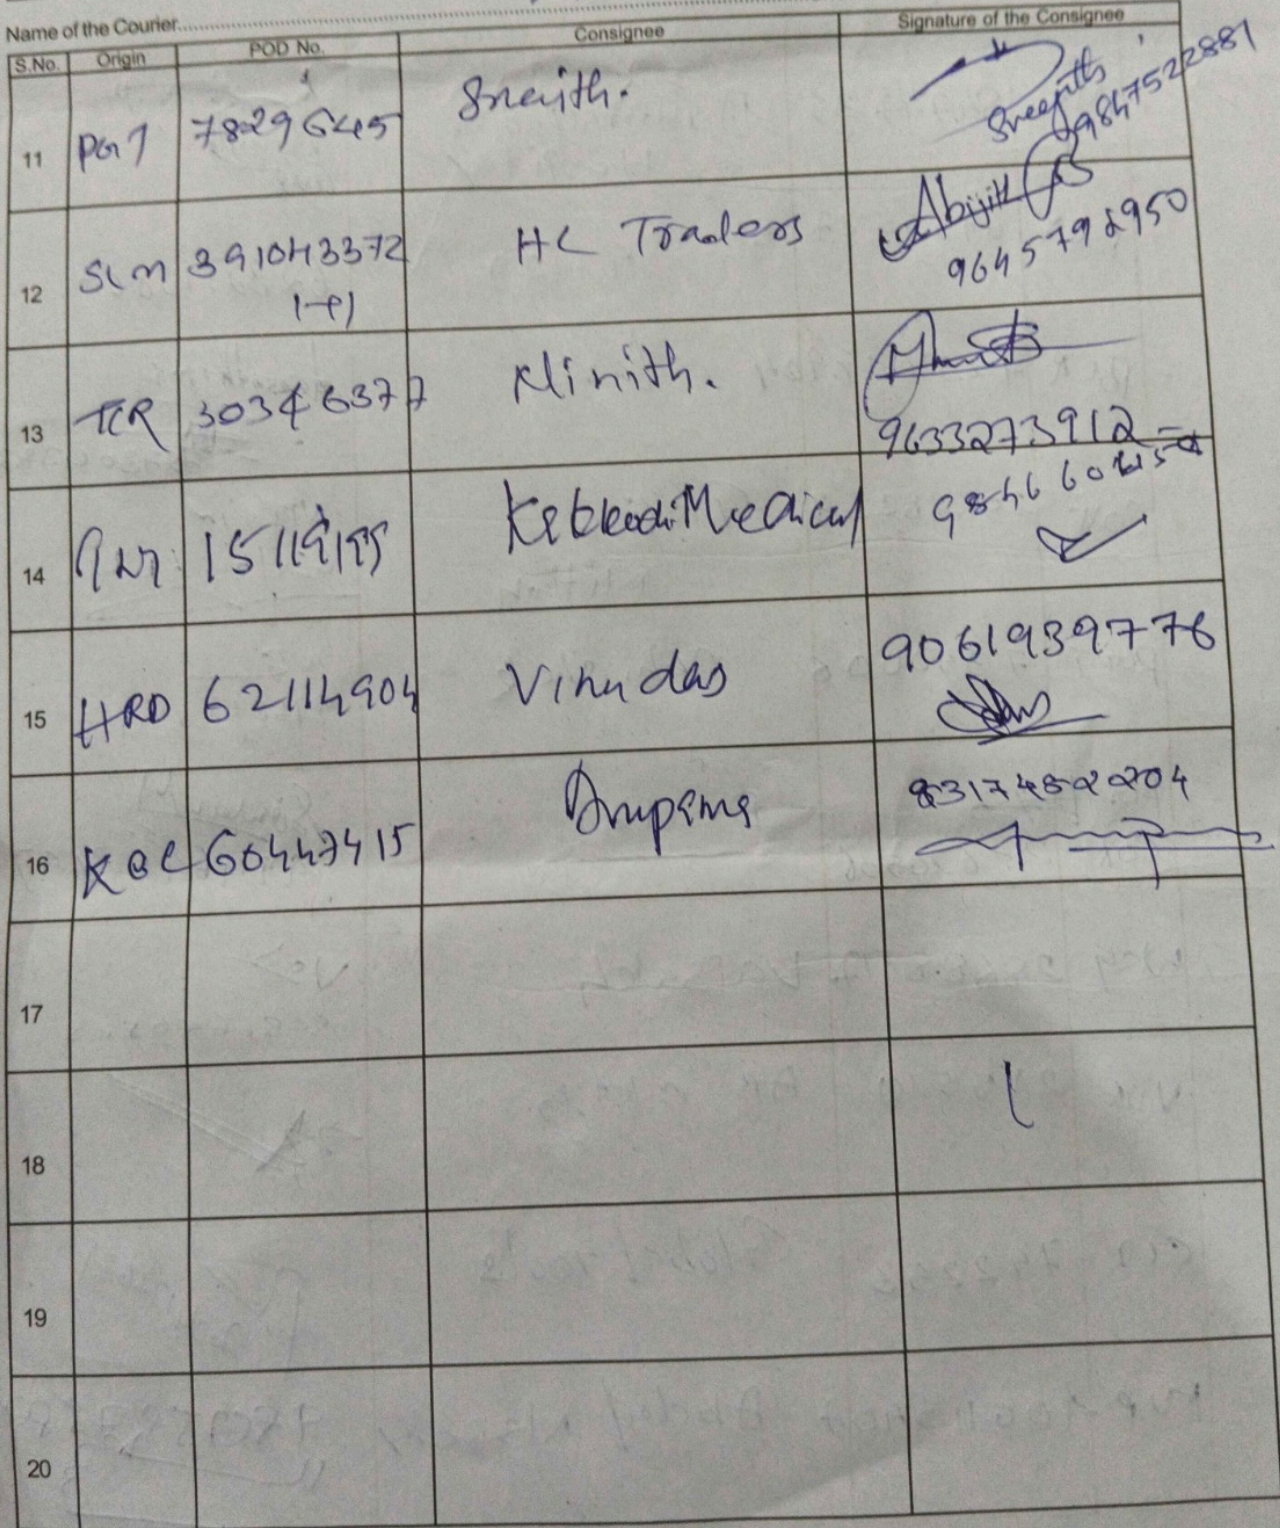 Name of the Courier
S.No. Origin POD No. Consignee Signature of the Consignee
11 PGT 78296545 Sreejith. Sreejith
9847522881
12 SLM 391043372 HC Traders Abijith
1-P1
13 TCR 30346377 Minith.
9633273912
14 15119155 Medical
15 HRD 62114904 Vinudas 9061939776
16 KOC 60447415 Anupama 8317452204
17
18
19
20